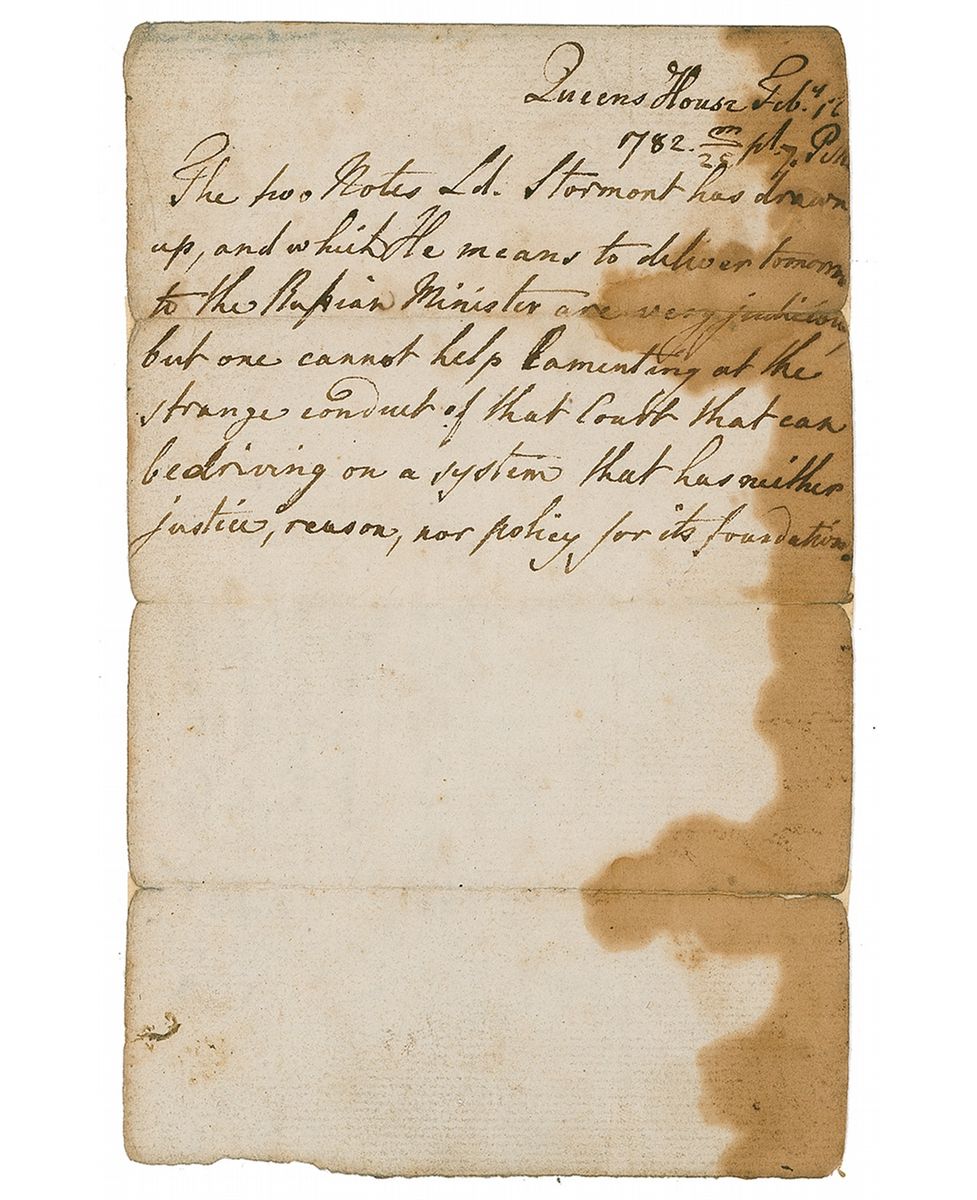 Queens House Feb.y
1782. m/28 pt. 7. P.M
The two Notes Ld. Stormont has drawn
up, and which He means to deliver tomorrow
to the Russian Minister are very judicious,
but one cannot help lamenting at the
strange conduct of that Court that can
be driving on a system that has neither
justice, reason, nor policy for its foundation.